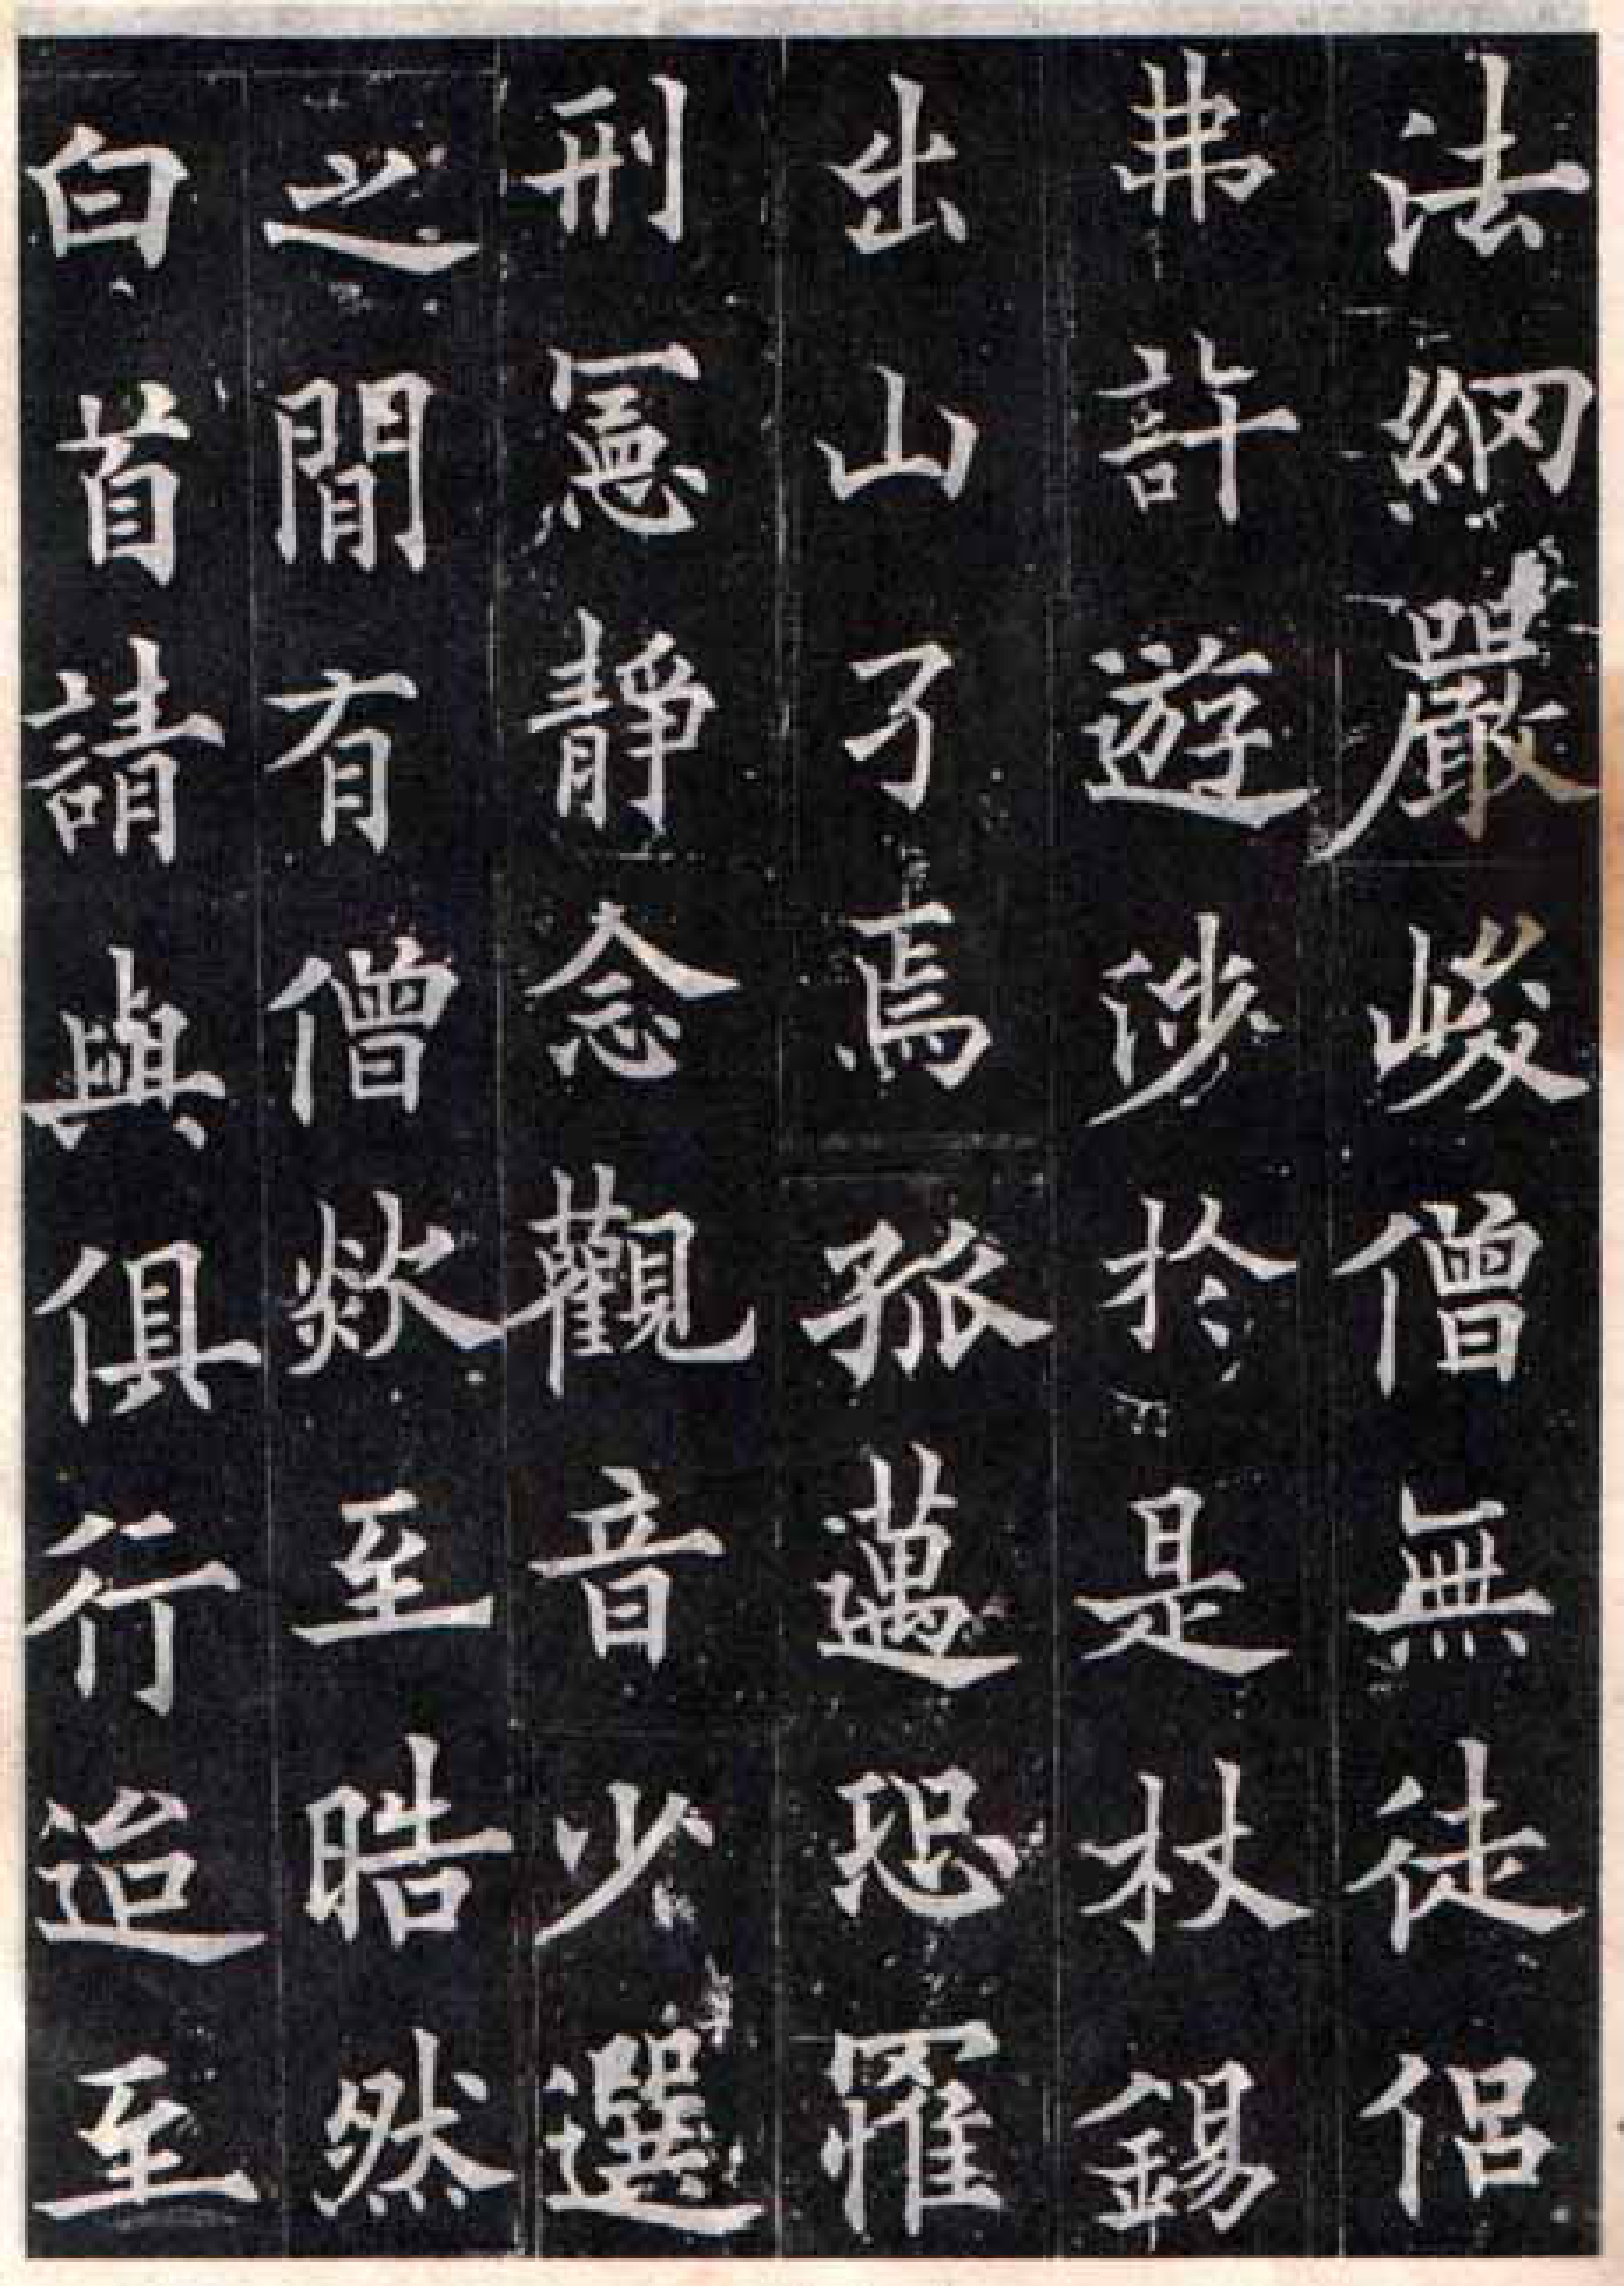 法網嚴峻僧無徒侣
弗許遊涉於是杖錫
出山孑焉孤邁恐罹
刑憲靜念觀音少選
之間有僧欻至皓然
白首請與俱行迨至